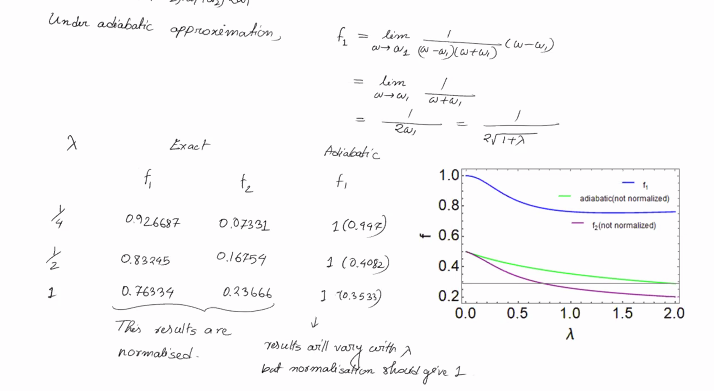 Under adiabatic approximation,
f₁ = lim ω→ω₁ 1/((ω-ω₁)(ω+ω₁)) (ω-ω₁)
= lim ω→ω₁ 1/(ω+ω₁)
= 1/(2ω₁) = 1/(2√(1+λ))
λ Exact Adiabatic
f₁ f₂ f₁
1/4 0.926687 0.07331 1 (0.447)
1/2 0.83245 0.16754 1 (0.4082)
1 0.76334 0.23666 1 (0.3533)
This results are
normalised.
results will vary with λ
but normalisation should give 1
f
1.0
0.8
0.6
0.4
0.2
f₁
adiabatic(not normalized)
f₂(not normalized)
0.0 0.5 1.0 1.5 2.0
λ